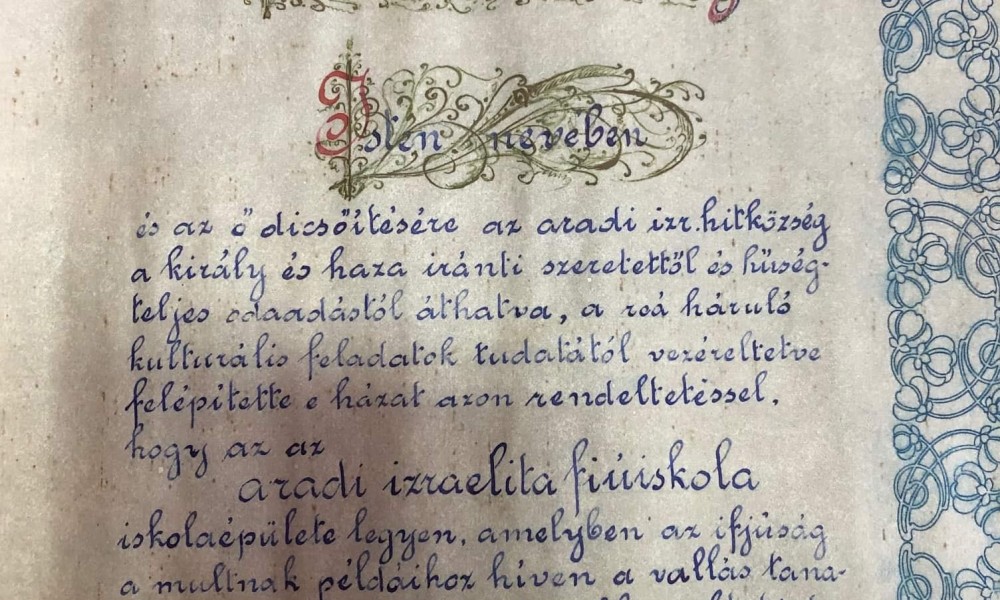 Isten nevében
és az ő dicsőítésére az aradi izr. hitközség
a király és haza iránti szeretettől és hüség-
teljes odaadástól áthatva, a reá háruló
kulturális feladatok tudatától vezéreltetve
felépítette e házat azon rendeltetéssel,
hogy az az
aradi izraelita fiúiskola
iskolaépülete legyen, amelyben az ifjúság
a multnak példáihoz híven a vallás tana-